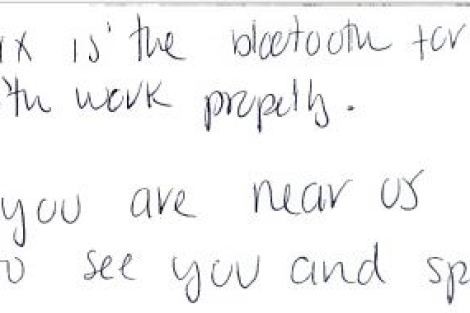 is the bloetooth for
work propetly.
you are near us
see you and sp